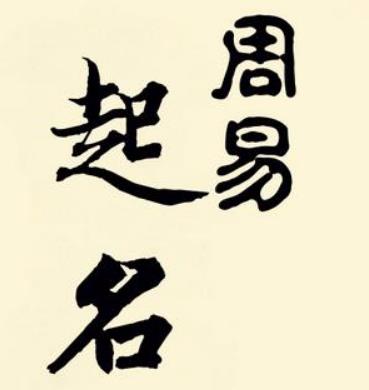 周易
起名